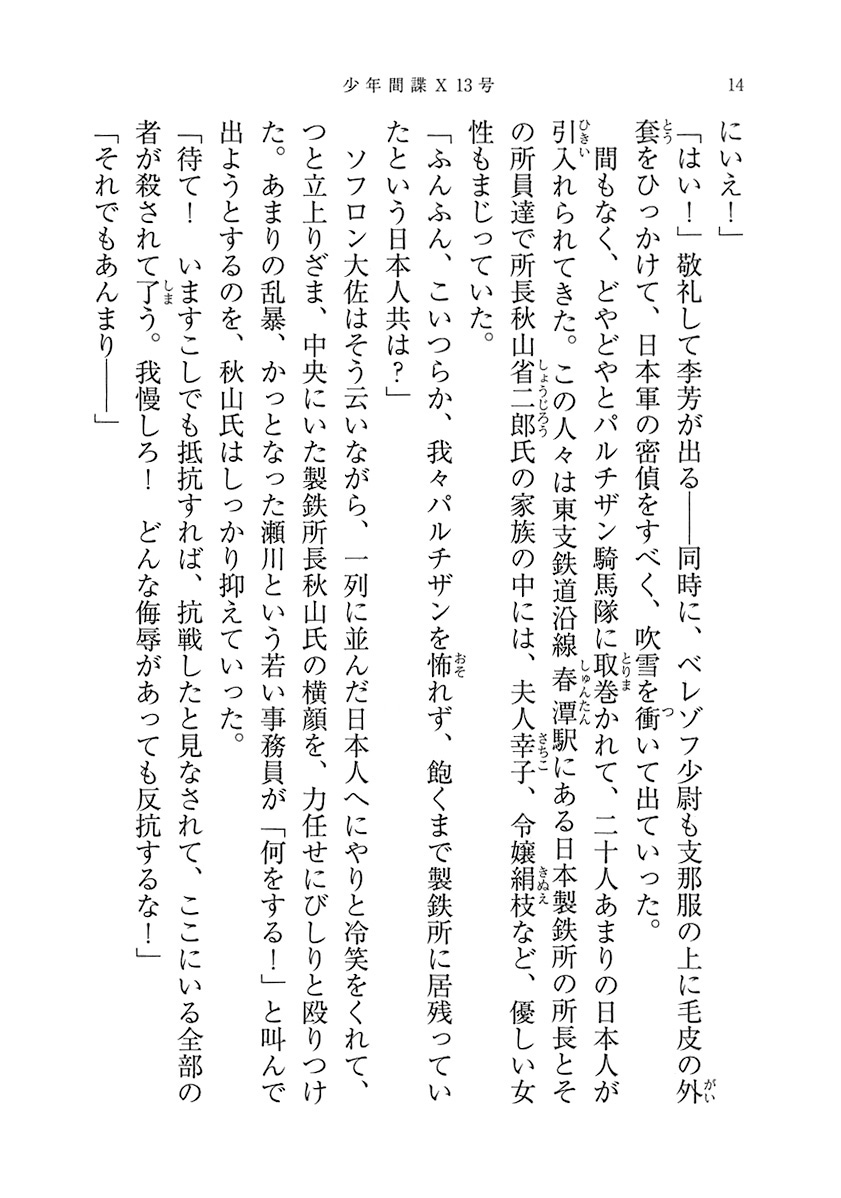 少年間諜X13号
14
にいえ！」
「はい！」敬礼して李芳が出る――同時に、ベレゾフ少尉も支那服の上に毛皮の外
套をひっかけて、日本軍の密偵をすべく、吹雪を衝いて出ていった。
　間もなく、どやどやとパルチザン騎馬隊に取巻かれて、二十人あまりの日本人が
引入れられてきた。この人々は東支鉄道沿線春潭駅にある日本製鉄所の所長とそ
の所員達で所長秋山省二郎氏の家族の中には、夫人幸子、令嬢絹枝など、優しい女
性もまじっていた。
「ふんふん、こいつらか、我々パルチザンを怖れず、飽くまで製鉄所に居残ってい
たという日本人共は？」
　ソフロン大佐はそう云いながら、一列に並んだ日本人へにやりと冷笑をくれて、
つと立上りざま、中央にいた製鉄所長秋山氏の横顔を、力任せにびしりと殴りつけ
た。あまりの乱暴、かっとなった瀬川という若い事務員が「何をする！」と叫んで
出ようとするのを、秋山氏はしっかり抑えていった。
「待て！　いますこしでも抵抗すれば、抗戦したと見なされて、ここにいる全部の
者が殺されて了う。我慢しろ！　どんな侮辱があっても反抗するな！」
「それでもあんまり――」